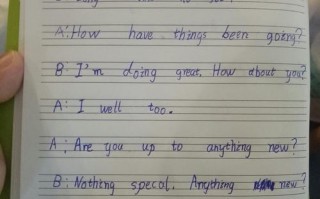 A: How have things been going?
B: I'm doing great. How about you?
A: I well too.
A: Are you up to anything new?
B: Nothing specal. Anything new?